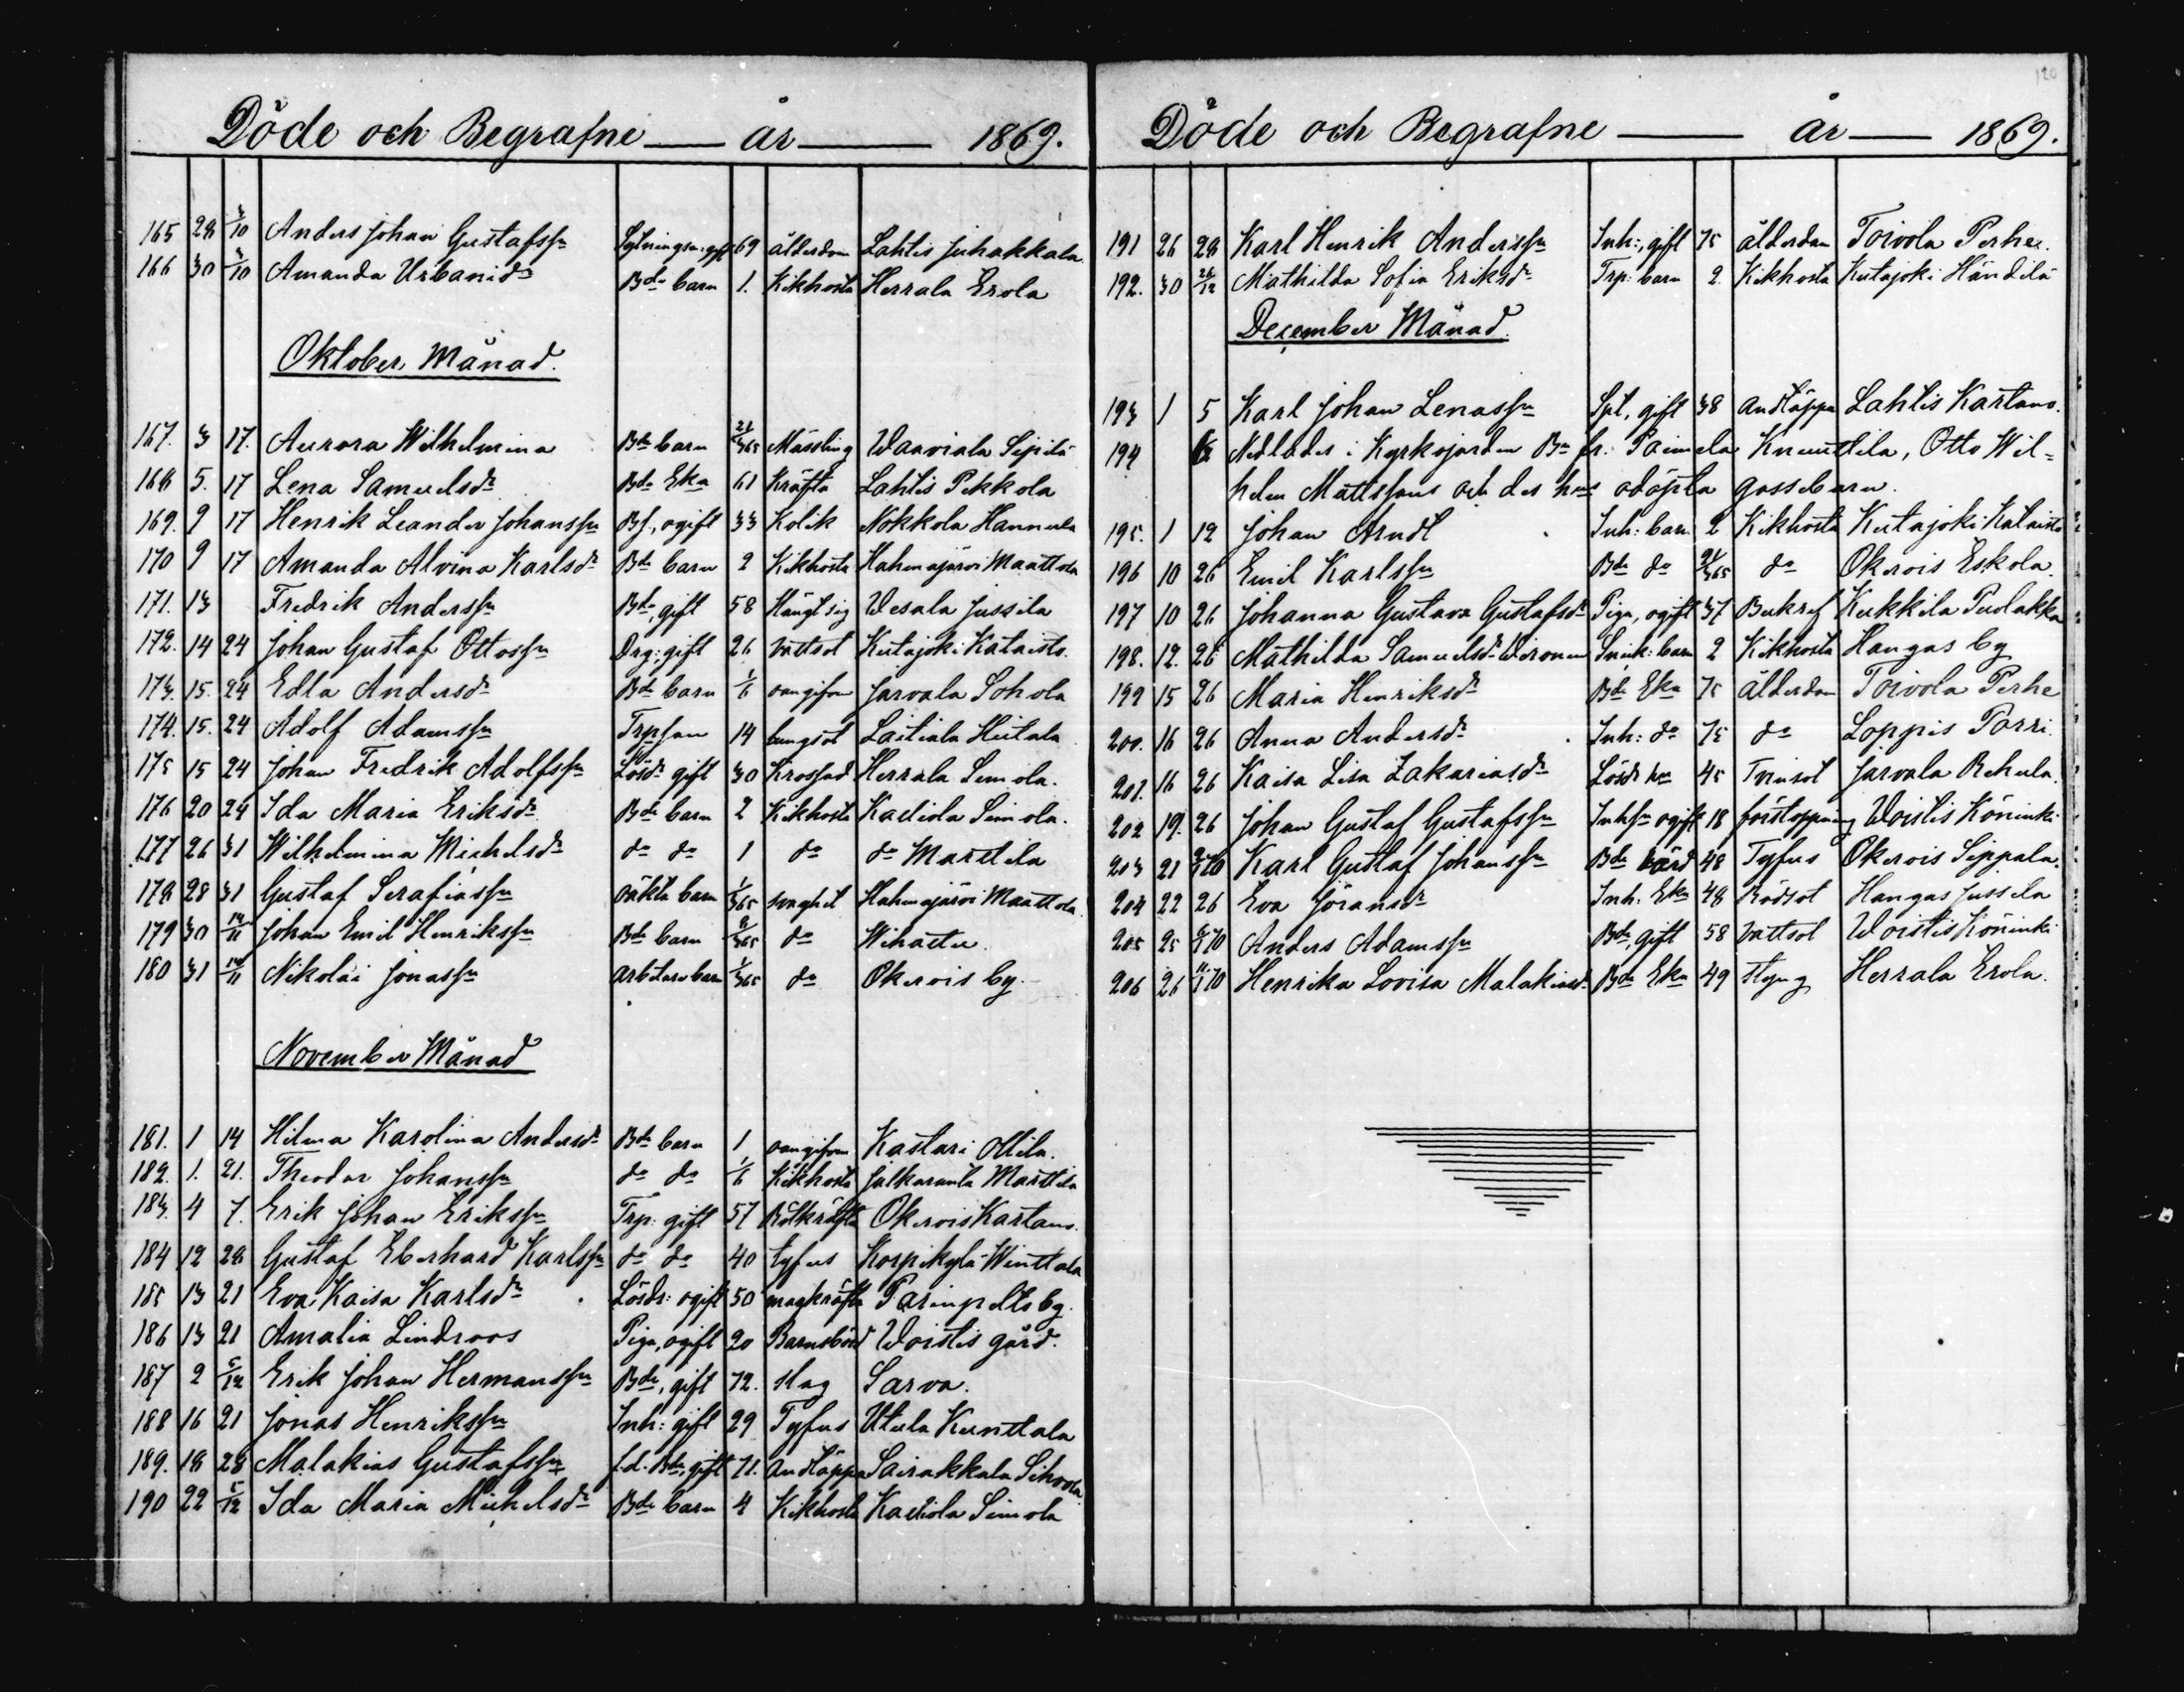 Döde och Begrafne år 1869.
165 28 3/10 Anders Johan Gustafsson Sytningsm: gift 69 ålderdom Lahtis Juhakkala
166 30 3/10 Amanda Urbanidr Bde barn 1. Kikhosta Herrala Erola
Oktober Månad.
167. 3 17. Aurora Wilhelmina Bde barn 21/365 Mässling Waaviala Sipilä
168 5. 17 Lena Samuelsdr Bde Eka 61 Kräfta Lahtis Pekkola
169. 9 17 Henrik Leander Johanssn Bs., ogift 33 Kolik Nokkola Hannula
170 9 17 Amanda Alvina Karlsdr Bde barn 2 Kikhosta Hahmajärvi Maattola
171. 13 Fredrik Anderssn Bde, gift 58 Hängt sig Wesala Jussila
172. 14 24 Johan Gustaf Ottossn Drg: gift 26 Vattsot Kutajoki Kataisto.
173. 15. 24 Edla Andersdr Bde barn 1/6 oangifven Jarvala Sohola
174. 15. 24 Adolf Adamssn Trp son 14 lungsot Laitiala Hietala
175 15 24 Johan Fredrik Adolfssn Lösdr gift 30 Krossad Herrala Simola.
176 20 24 Ida Maria Eriksdr Bde barn 2 Kikhosta Kaliola Simola.
177 26 31 Wilhelmina Michelsdr do do 1 do do Marttila
178 28 31 Gustaf Serafiassn oäkta barn 1/365 svaghet Hahmajärvi Maattola
179 30 14/11 Johan Emil Henrikssn Bde barn 8/365 do Wihattu
180 31 14/11 Nikolai Jonassn arbetare barn 1/365 do Okerois by.
November Månad
181. 1 14 Hilma Karolina Andersdr Bde barn 1 oangifven Kastari Ollila.
182. 1. 21. Theodor Johanssn do do 1/6 Kikhosta Jalkaranta Marttila
183. 4 7. Erik Johan Erikssn Trp: gift 57 Rötkräfta Okerois Kartano.
184 12 28 Gustaf Eberhard Karlssn do do 40 tyfus Korpikylä Winttala
185 13 21 Eva Kaisa Karlsdr Lösdr: ogift 50 magkräfta Parinpelto by.
186 13 21 Amalia Lindroos Piga, ogift 20 Barnsbörd Woistis gård.
187 2 5/12 Erik Johan Hermanssn Bde, gift 72. slag Sarva.
188 16 21 Jonas Henrikssn Inh: gift 29 Tyfus Utula Kunttala
189. 18 28 Malakias Gustafssn f.d. Bde, gift 71. andtäppa Sairakkala Sihvola
190 22 5/12 Ida Maria Michelsdr Bde barn 4 Kikhosta Kaliola Simola
120
Döde och Begrafne år 1869.
191 26 28 Karl Henrik Anderssn Inh:, gift 75 ålderdom Toivola Perhe.
192. 30 26/12 Mathilda Sofia Eriksdr Trp: barn 2. Kikhosta Kutajoki Händilä
December Månad.
193 1 5 Karl Johan Lenassn Spt, gift 38 andtäppa Lahtis Kartano.
194 Nedlades i Kyrkojorden Bn fr. Paimela Knuuttila, Otto Wil=
helm Mattssons och dess hus odöpta gossebarn.
195. 1 12 Johan Arndt Inh: barn 2 Kikhosta Kutajoki Kataisto
196 10 26 Emil Karlssn Bde do 21/365 do Okerois Eskola.
197 10 26 Johanna Gustava Gustafsdr Piga, ogift 37 Bukref Kukkila Puolakka
198. 12. 26 Mathilda Samuelsdr Wironen barn 2 Kikhosta Hangas by
199 15 26 Maria Henriksdr Bde Eka 75 ålderdom Toivola Perhe
200. 16 26 Anna Andersdr Inh: do 75 do Loppis Porri.
201. 16 26 Kaisa Lisa Zakariasdr Lösdr 45 Tvinsot Jarvala Rekula.
202 19. 26 Johan Gustaf Gustafssn Inhsn ogift 18 förstoppning Woistis Köninki
203 21 Karl Gustaf Johanssn Bde värd 48 Tyfus Okerois Sippala.
204 22 26 Eva Göransdr Inh. Eka 48 Rödsot Hangas Jussila
205 25 Anders Adamssn Bde, gift 58 Vattsot Woistis Köninki
206 26 Henrika Lovisa Malakiasdr Bde Eka 49 Herrala Erola.